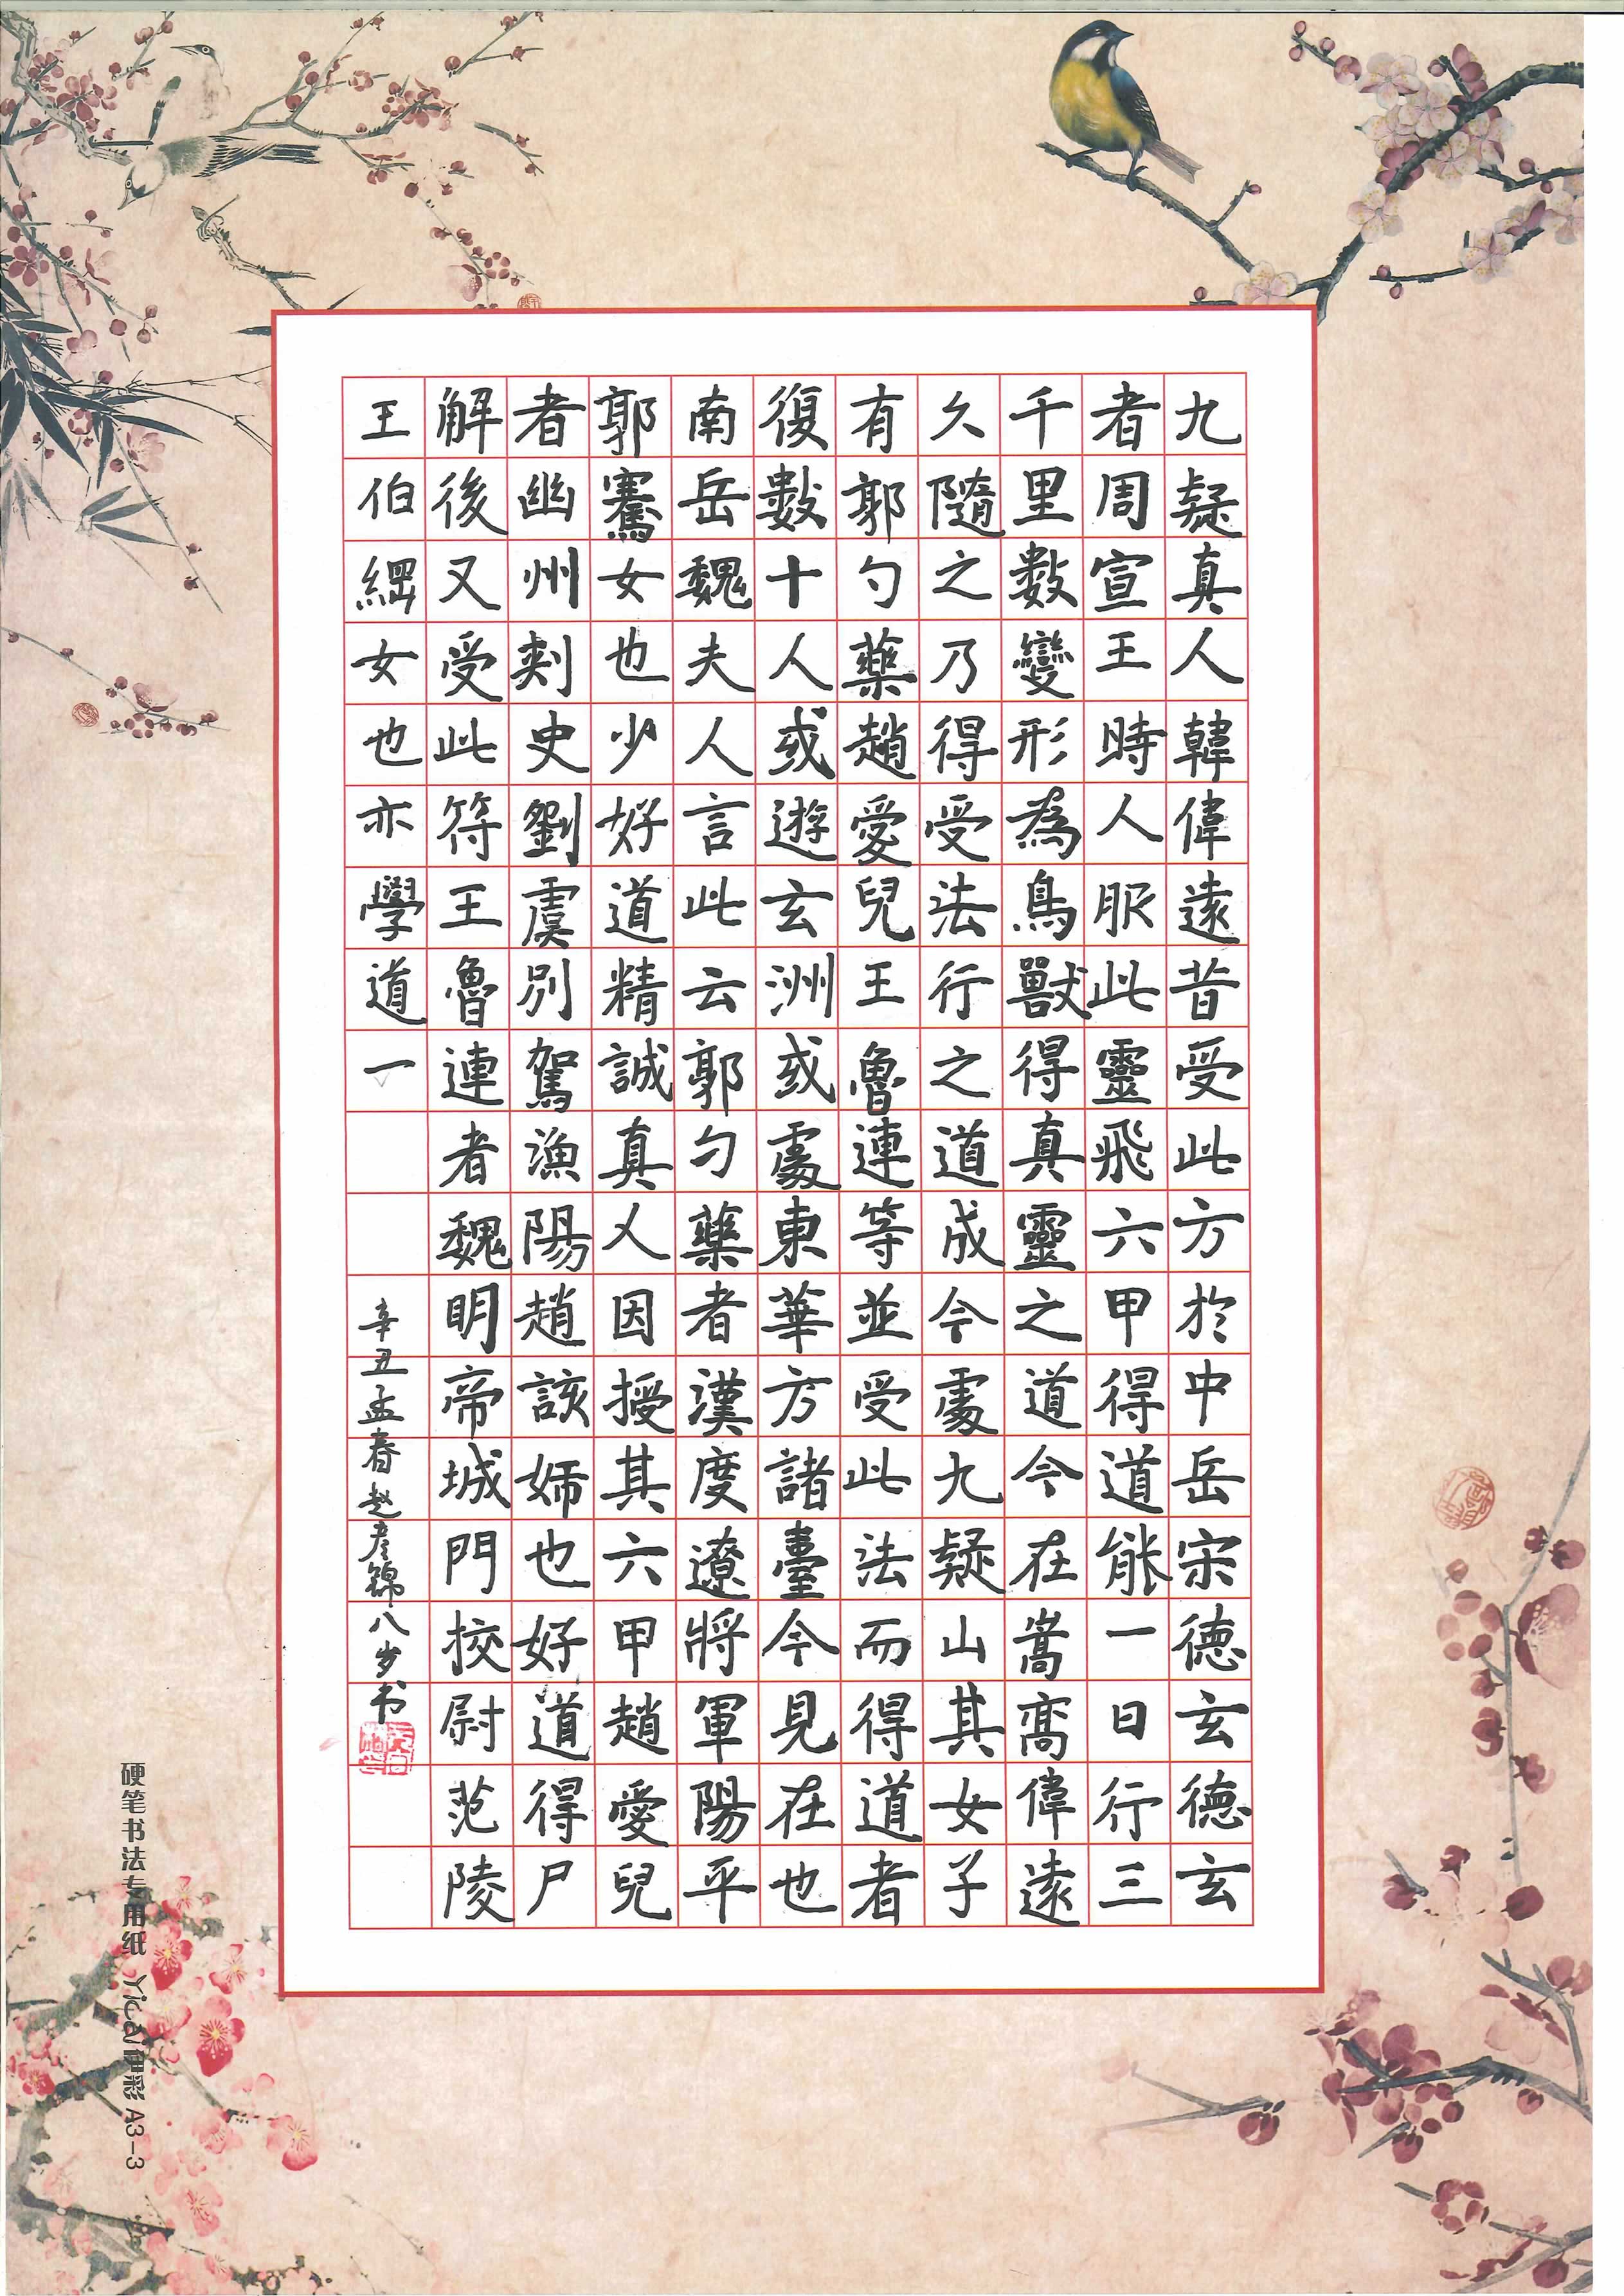 九疑真人韓偉遠昔受此方於中岳宋德玄德玄
者周宣王時人服此靈飛六甲得道能一日行三
千里數變形為鳥獸得真靈之道今在嵩高偉遠
久隨之乃得受法行之道成今處九疑山其女子
有郭勺藥趙愛兒王魯連等並受此法而得道者
復數十人或遊玄洲或處東華方諸臺今見在也
南岳魏夫人言此云郭勺藥者漢度遼將軍陽平
郭騫女也少好道精誠真人因授其六甲趙愛兒
者幽州刾史劉虞別駕漁陽趙該姊也好道得尸
解後又受此符王魯連者魏明帝城門挍尉范陵
王伯綱女也亦學道一
辛丑孟春赵彦锦八岁书
硬笔书法专用纸 Yicai 伊彩 A3-3